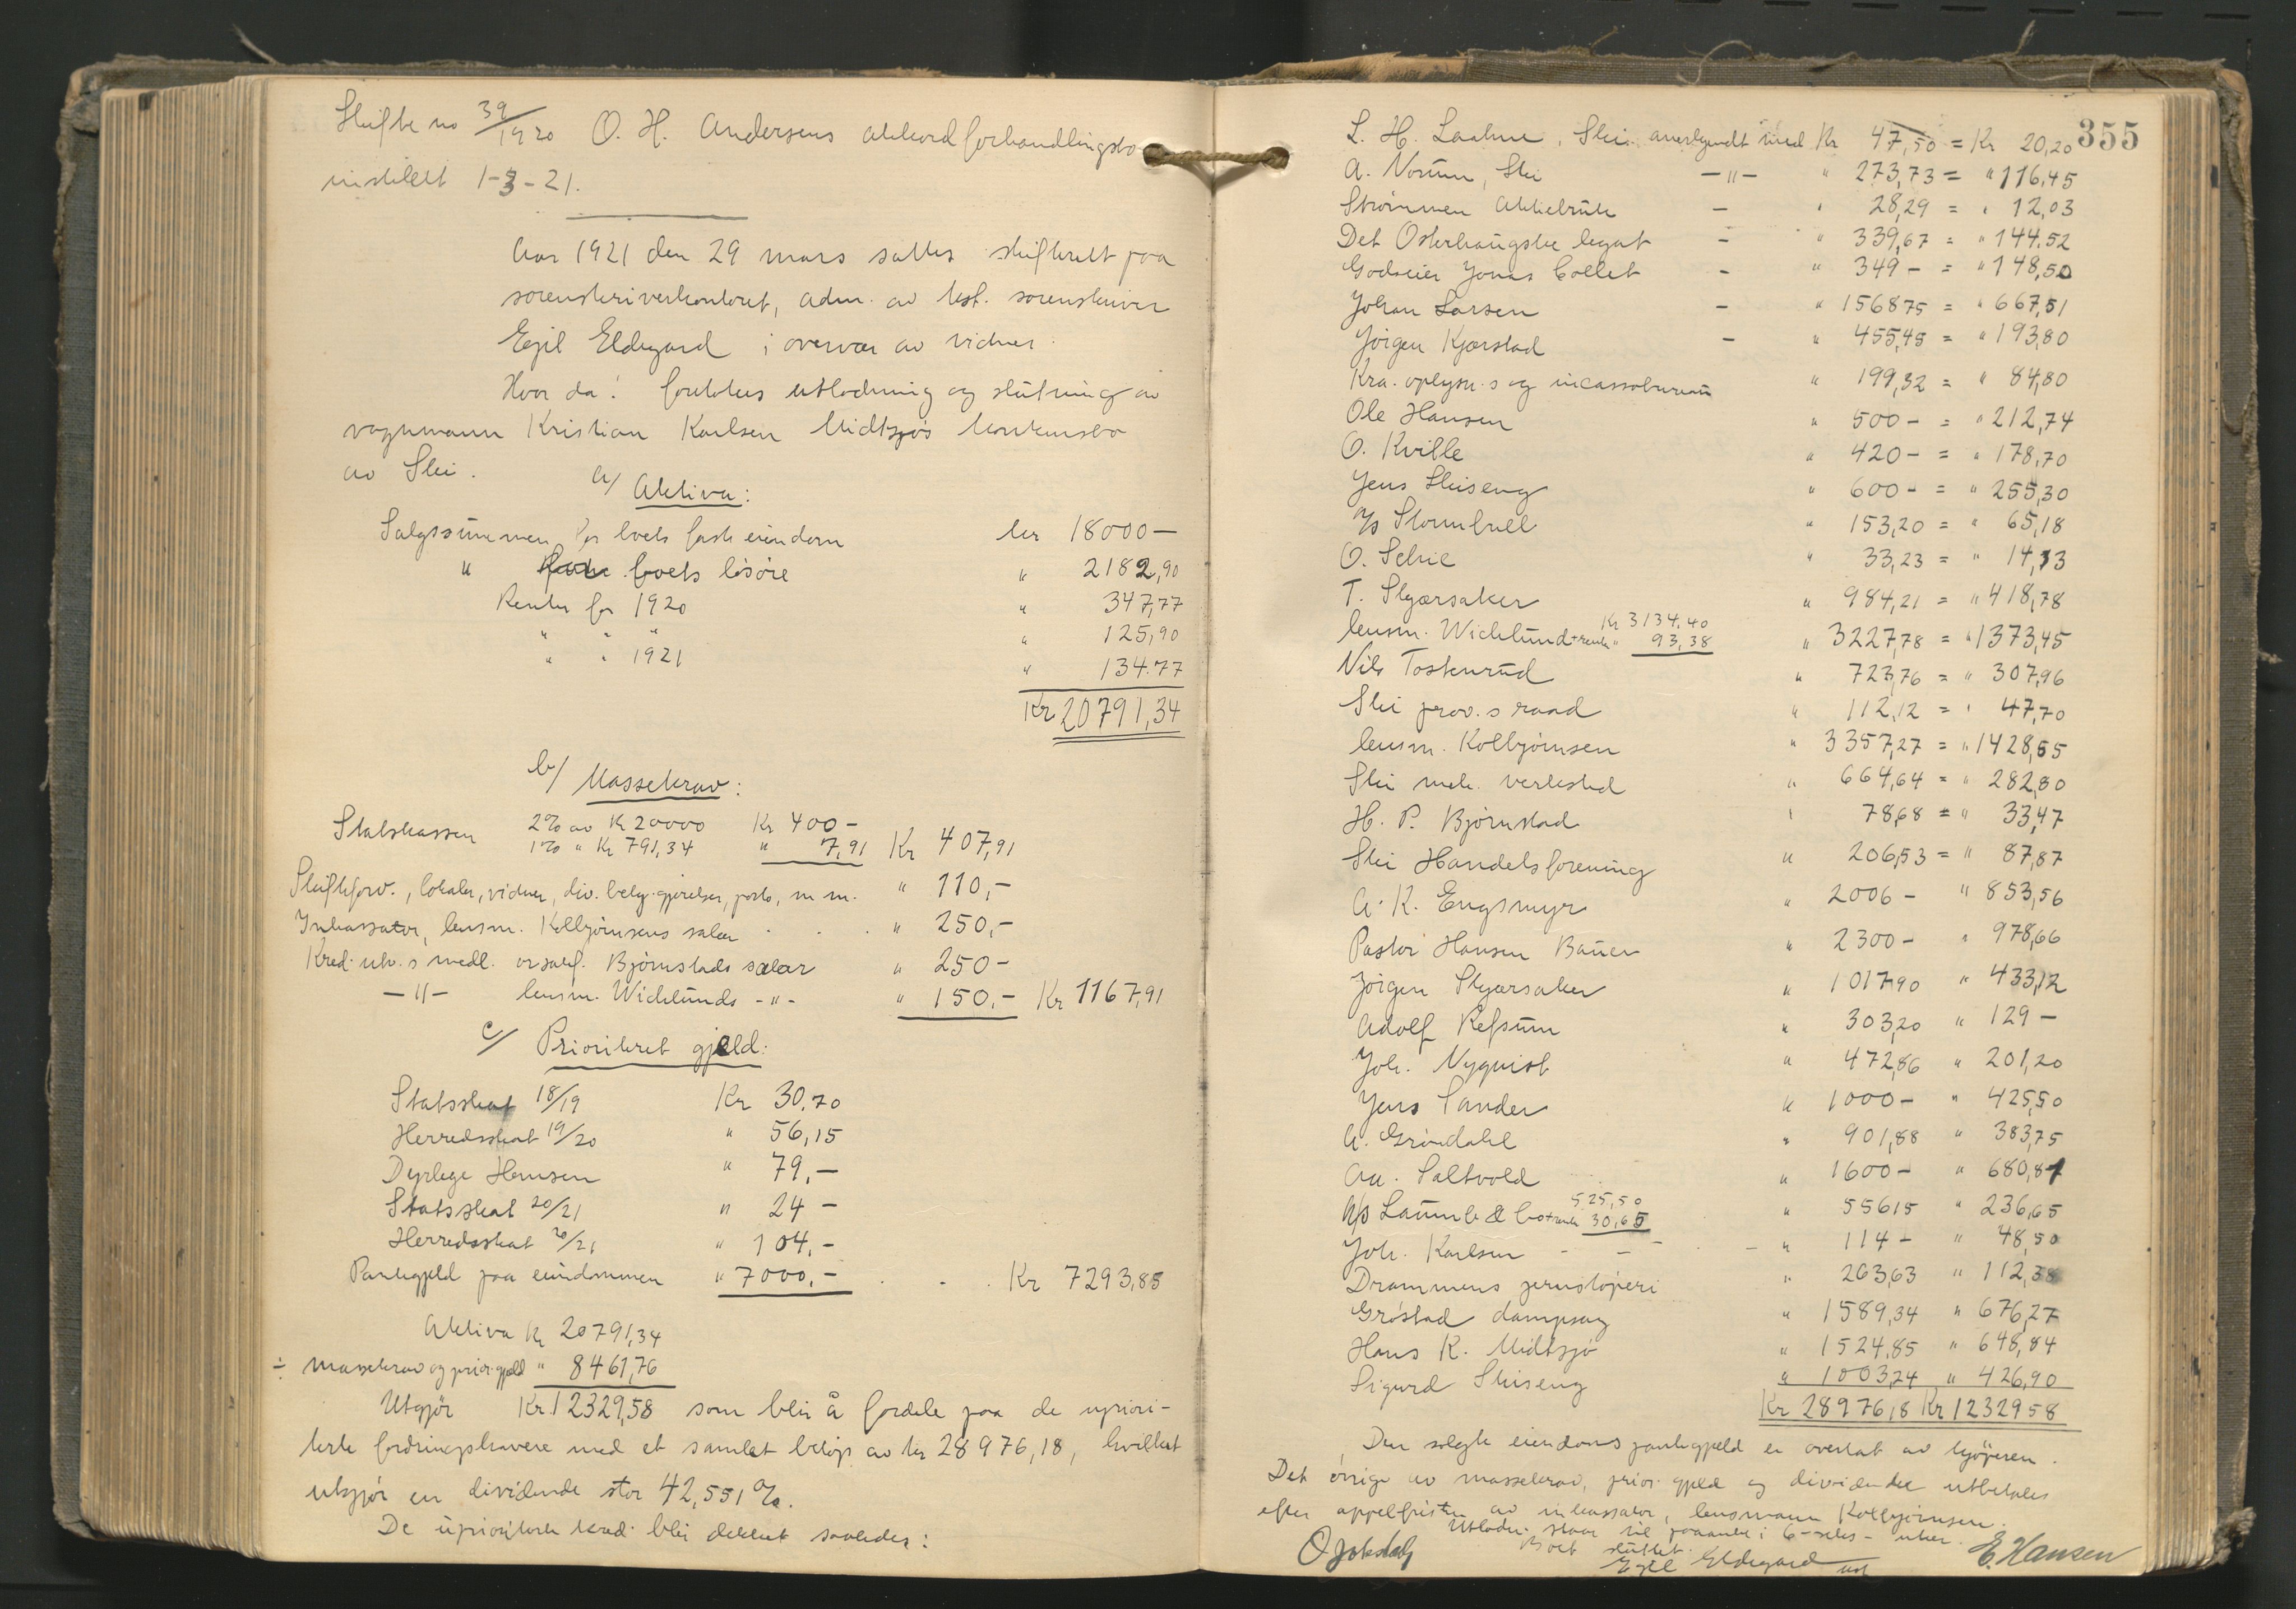 Skifte no 39/1920 O. H. Andersens akkordforhandlingsbo
instillett 1-3-21.
Aar 1921 den 29 mars sattes skifterett paa
sorenskriverkontoret, adm. av kst. sorenskriver
Egil Eldegard i overvær av vidner.
Hvor da: foretokes utlodning og slutning av
vognmann Kristian Karlsen Midtsjøs konkursbo
av Ski.
a/ Aktiva:
Salgssummen for boets faste eiendom kr 18000 —
" boets lösöre " 2182,90
Renter for 1920 " 347,77
" " " " 125,90
" " 1921 " 134.77
Kr 20791,34
b/ Massekrav:
Statskassen 2% av Kr 20000 Kr 400 -
1% " Kr 791,34 " 7,91 Kr 407,91
Skifteforv., lokaler, vidner, div. bekj.gjörelser, porto, m m. " 110,-
Inkassator, lensm. Kolbjörnsens salær " 250,-
Kred.utv.s medl. orsakf. Björnstads salær " 250 -
—"— lensm. Wicklunds -"- " 150.- Kr 1167,91
c/ Prioritert gjeld:
Statsskat 18/19 Kr 30.70
Herredsskat 19/20 " 56,15
Dyrlege Hansen " 79.—
Statsskat 20/21 " 24 —
Herredsskat 20/21 " 104.-
Pantegjeld paa eiendommen " 7000.- Kr 7293,85
Aktiva Kr 20791,34
÷ massekrav og prior.gjeld " 8461,76
Utgjör Kr. 12329,58 som blir å fordele paa de upriori-
terte fordringshavere med et samlet belöp av kr 28976,18, hvilket
utgjör en dividende stor 42,551 %.
De uprioriterte kred. blir dekket saaledes:
355
L. H. Laahne, Ski anerkjendt med Kr 47,50 = Kr 20,20
A. Norum, Ski —"— " 273,73 = " 116,45
Strömmen Aktiebruk — " 28,29 = " 12,03
Det Osterhaugske legat - " 339,67 = " 144.52
Godseier Jonas Collet - " 349 - = " 148,50
Johan Larsen - " 156875 = " 667,51
Jörgen Kjærstad - " 455,45 = " 193,80
Kra. oplysn.s og incassobureau " 199,32 = " 84,80
Ole Hansen " 500 - = " 212,74
O. Kville " 420 - = " 178,70
Jens Skiseng " 600 - = " 255,30
A/s Stormbull " 153,20 = " 65,18
O. Schie " 33,23 = " 14,13
T. Skjærsaker " 984,21 = " 418,78
lensm. Wicklund + rente Kr 3134.40 " 93,38 " 3227,78 = " 1373,45
Nils Tostenrud " 723,76 = " 307,96
Ski prov.s raad " 112,12 = " 47,70
lensm. Kolbjörnsen " 3357,27 = " 1428,55
Ski mek. verksted " 664,64 = " 282,80
H. P. Björnstad " 78,68 = " 33,47
Ski Handelsforening " 206,53 = " 87,87
A. K. Engsmyr " 2006 - " 853,56
Pastor Hansen Bauer " 2300 - " 978,66
Jörgen Skjærsaker " 101790 " 433,12
Adolf Refsum " 303,20 " 129 -
Joh. Nyquist " 472,86 " 201,20
Jens Sander " 1000 - " 425,50
A. Gröndahl " 901,88 " 383,75
Aa. Saltvold " 1600 - " 680,81
A/s Laumb & Co + rente 525,50 30,65 " 55615 " 236,65
Joh. Karlsen " 114 - " 48,50
Drammens jernstöperi " 263,63 " 112,38
Gröstad dampsag " 1589,34 " 676,27
Hans K. Midtsjö " 1524,85 " 648,84
Sigurd Skiseng " 1003,24 " 426,90
Kr 28976,18 Kr 1232958
Den solgte eiendoms pantegjeld er overtat av kjöperen.
Det övrige av massekrav, prior. gjeld og dividende utbetales
efter appelfristen av inkassator, lensmann Kolbjörnsen.
Utlodn. staar til paaanke i 6 -seks- uker.
Boet sluttet.
Egil Eldegard
E. Hansen